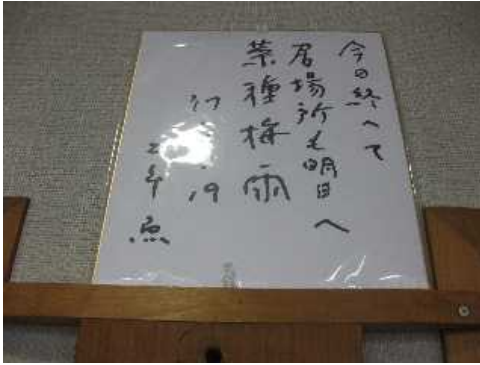 今日終へて
居場所も明日へ
菜種梅雨